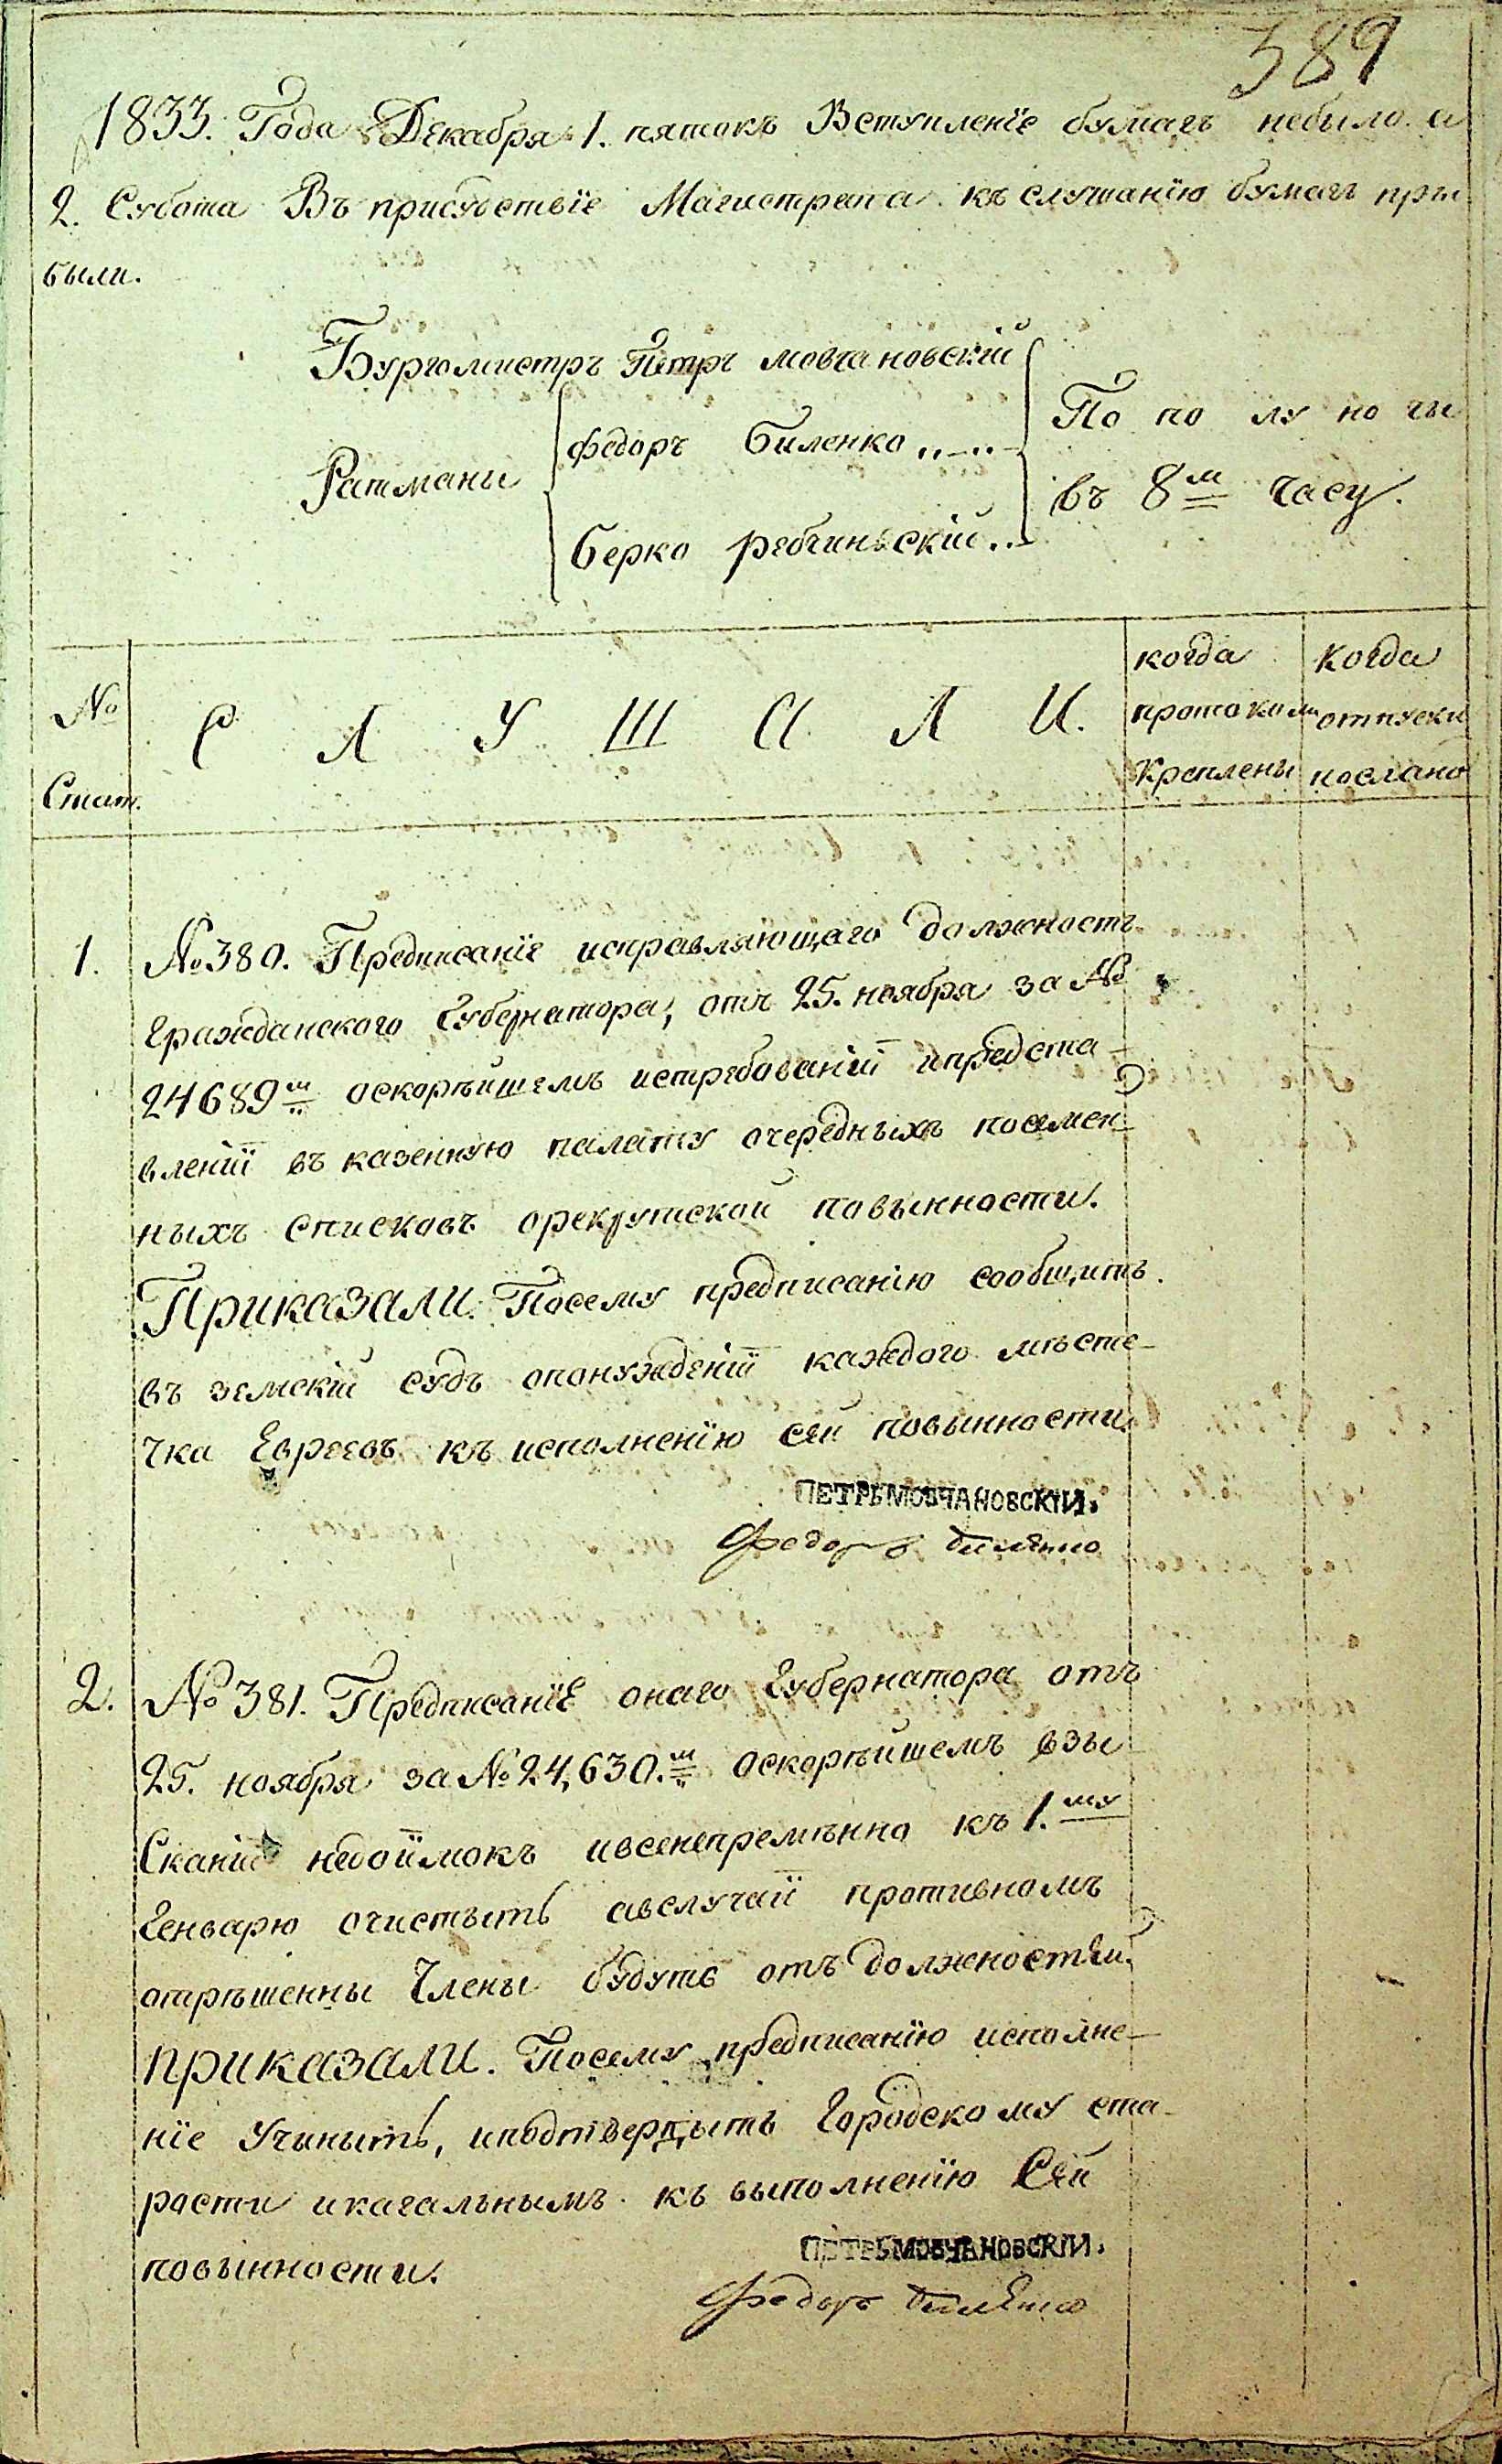 389
1833. Года Декабря 1. пятокъ Вступленіе бумагъ небыло. а
2. Субота Въ присудствіе Магистрата къ слушанію бумагъ при
были.
Бургомистръ Петръ Мовчановскій
Федоръ Биленко
По по лу но чи
Ратманы
въ 8м часу.
Берко Ребчиньскій
№ Стат.
С Л У Ш А Л И.
когда протоколы Креплены
Когда отпуски послано
1. №380. Предписаніе исправляющаго должность
Гражданского Губернатора, отъ 25. ноября за №
24689м оскорѣйшемъ истребованіи ипредста-
вленіи въ казенную палату очередныхъ посемен-
ныхъ списковъ орекрутской повынности.
Приказали. Посему предписанію сообщить
въ земскій судъ опонужденіи каждого мѣсте-
чка Евреевъ къ исполненію сей повынности.
ПЕТРЪ МОВЧАНОВСКІЙ.
Федоръ Биленко
2. №381. Предписаніе онаго Губернатора отъ
25. ноября за №24,630.м оскорѣйшемъ взы-
Сканіи недоимокъ ивсенепремѣнно къ 1.му
Генварю очистыть авслучаи противномъ
отрѣшенны Члены будуть отъ должностей.
приказали. Посему предписанію исполне-
ніе Учыныть, иподтвердыть Городскому ста-
рости икагальнымъ къ выполненію Сей
повынности.
ПЕТРЪ МОВЧАНОВСКІЙ.
Федоръ Биленко